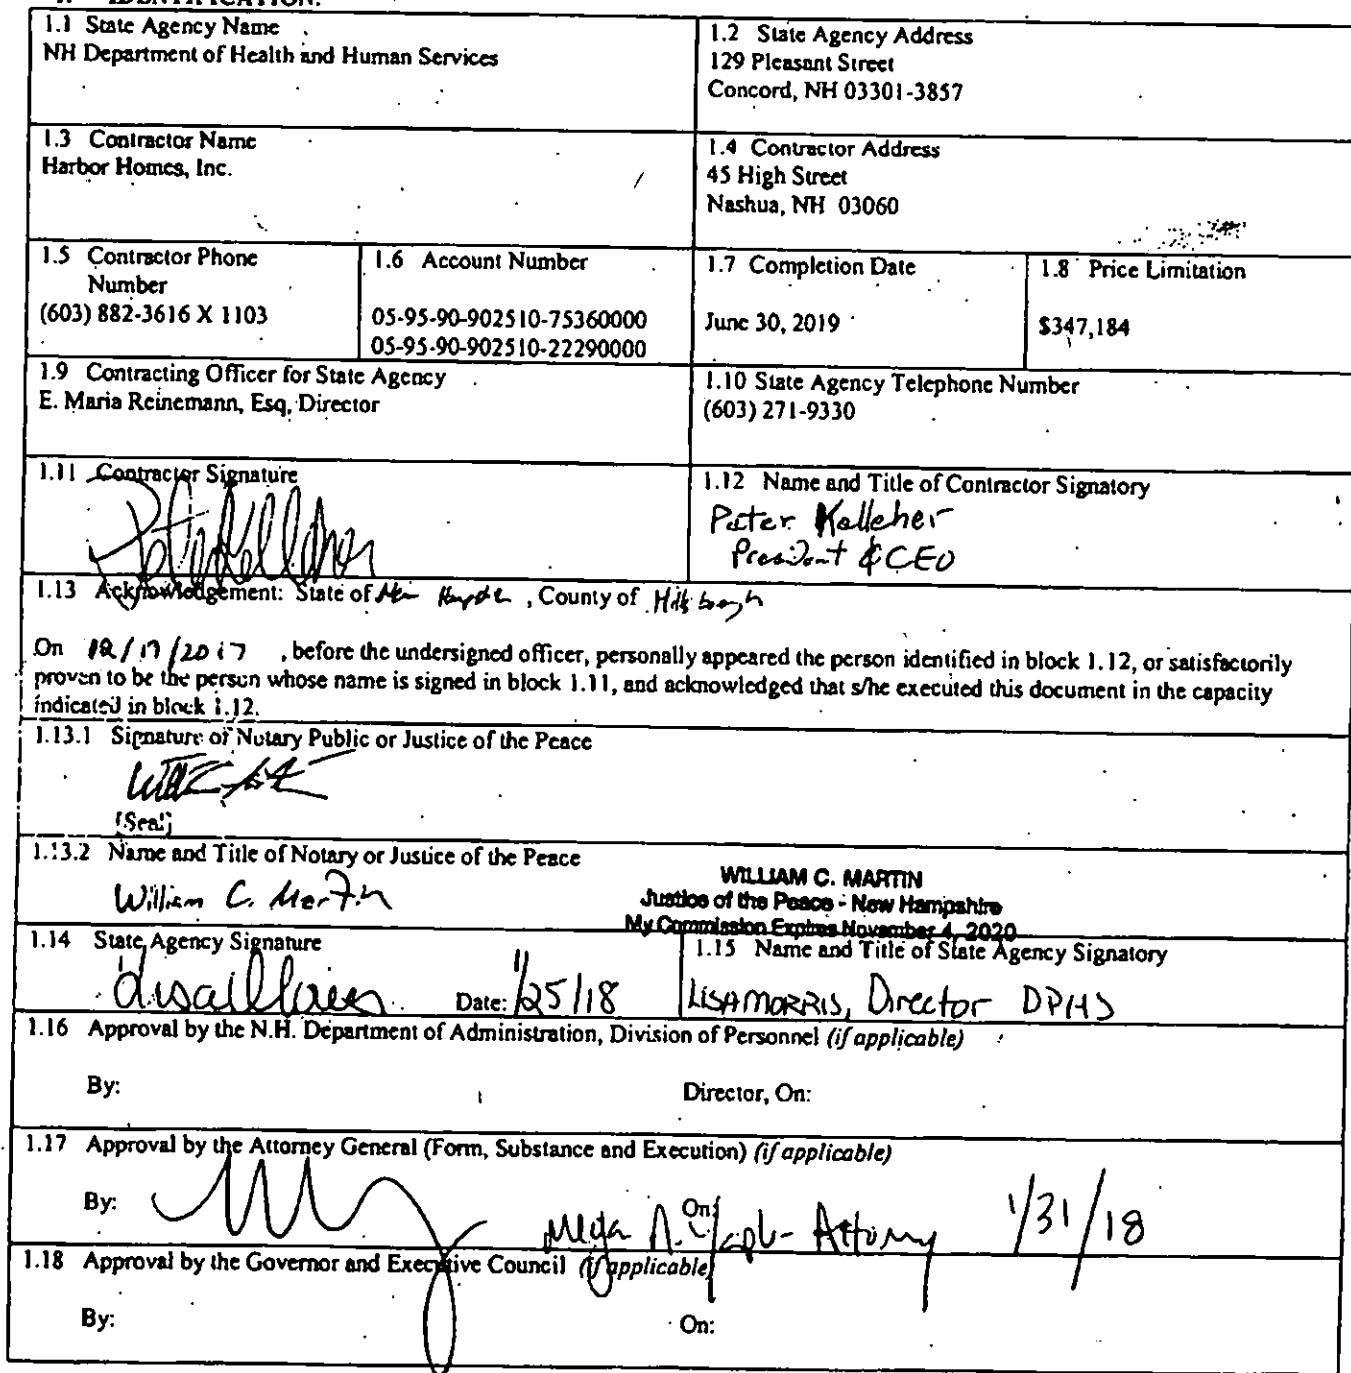 1. IDENTIFICATION.
1.1 State Agency Name
NH Department of Health and Human Services
1.2 State Agency Address
129 Pleasant Street
Concord, NH 03301-3857
1.3 Contractor Name
Harbor Homes, Inc.
1.4 Contractor Address
45 High Street
Nashua, NH 03060
1.5 Contractor Phone
Number
(603) 882-3616 X 1103
1.6 Account Number
05-95-90-902510-75360000
05-95-90-902510-22290000
1.7 Completion Date
June 30, 2019
1.8 Price Limitation
$347,184
1.9 Contracting Officer for State Agency
E. Maria Reinemann, Esq, Director
1.10 State Agency Telephone Number
(603) 271-9330
1.11 Contractor Signature
1.12 Name and Title of Contractor Signatory
Peter Kelleher
President & CEO
1.13 Acknowledgement: State of New Hampshire, County of Hillsborough
On 12/19/2017, before the undersigned officer, personally appeared the person identified in block 1.12, or satisfactorily
proven to be the person whose name is signed in block 1.11, and acknowledged that s/he executed this document in the capacity
indicated in block 1.12.
1.13.1 Signature of Notary Public or Justice of the Peace
[Seal]
1.13.2 Name and Title of Notary or Justice of the Peace
William C. Martin
WILLIAM C. MARTIN
Justice of the Peace - New Hampshire
My Commission Expires November 4, 2020
1.14 State Agency Signature
Date: 1/25/18
1.15 Name and Title of State Agency Signatory
LISA MORRIS, Director DPHS
1.16 Approval by the N.H. Department of Administration, Division of Personnel (if applicable)
By: Director, On:
1.17 Approval by the Attorney General (Form, Substance and Execution) (if applicable)
By: On: Attorney 1/31/18
1.18 Approval by the Governor and Executive Council (if applicable)
By: On: